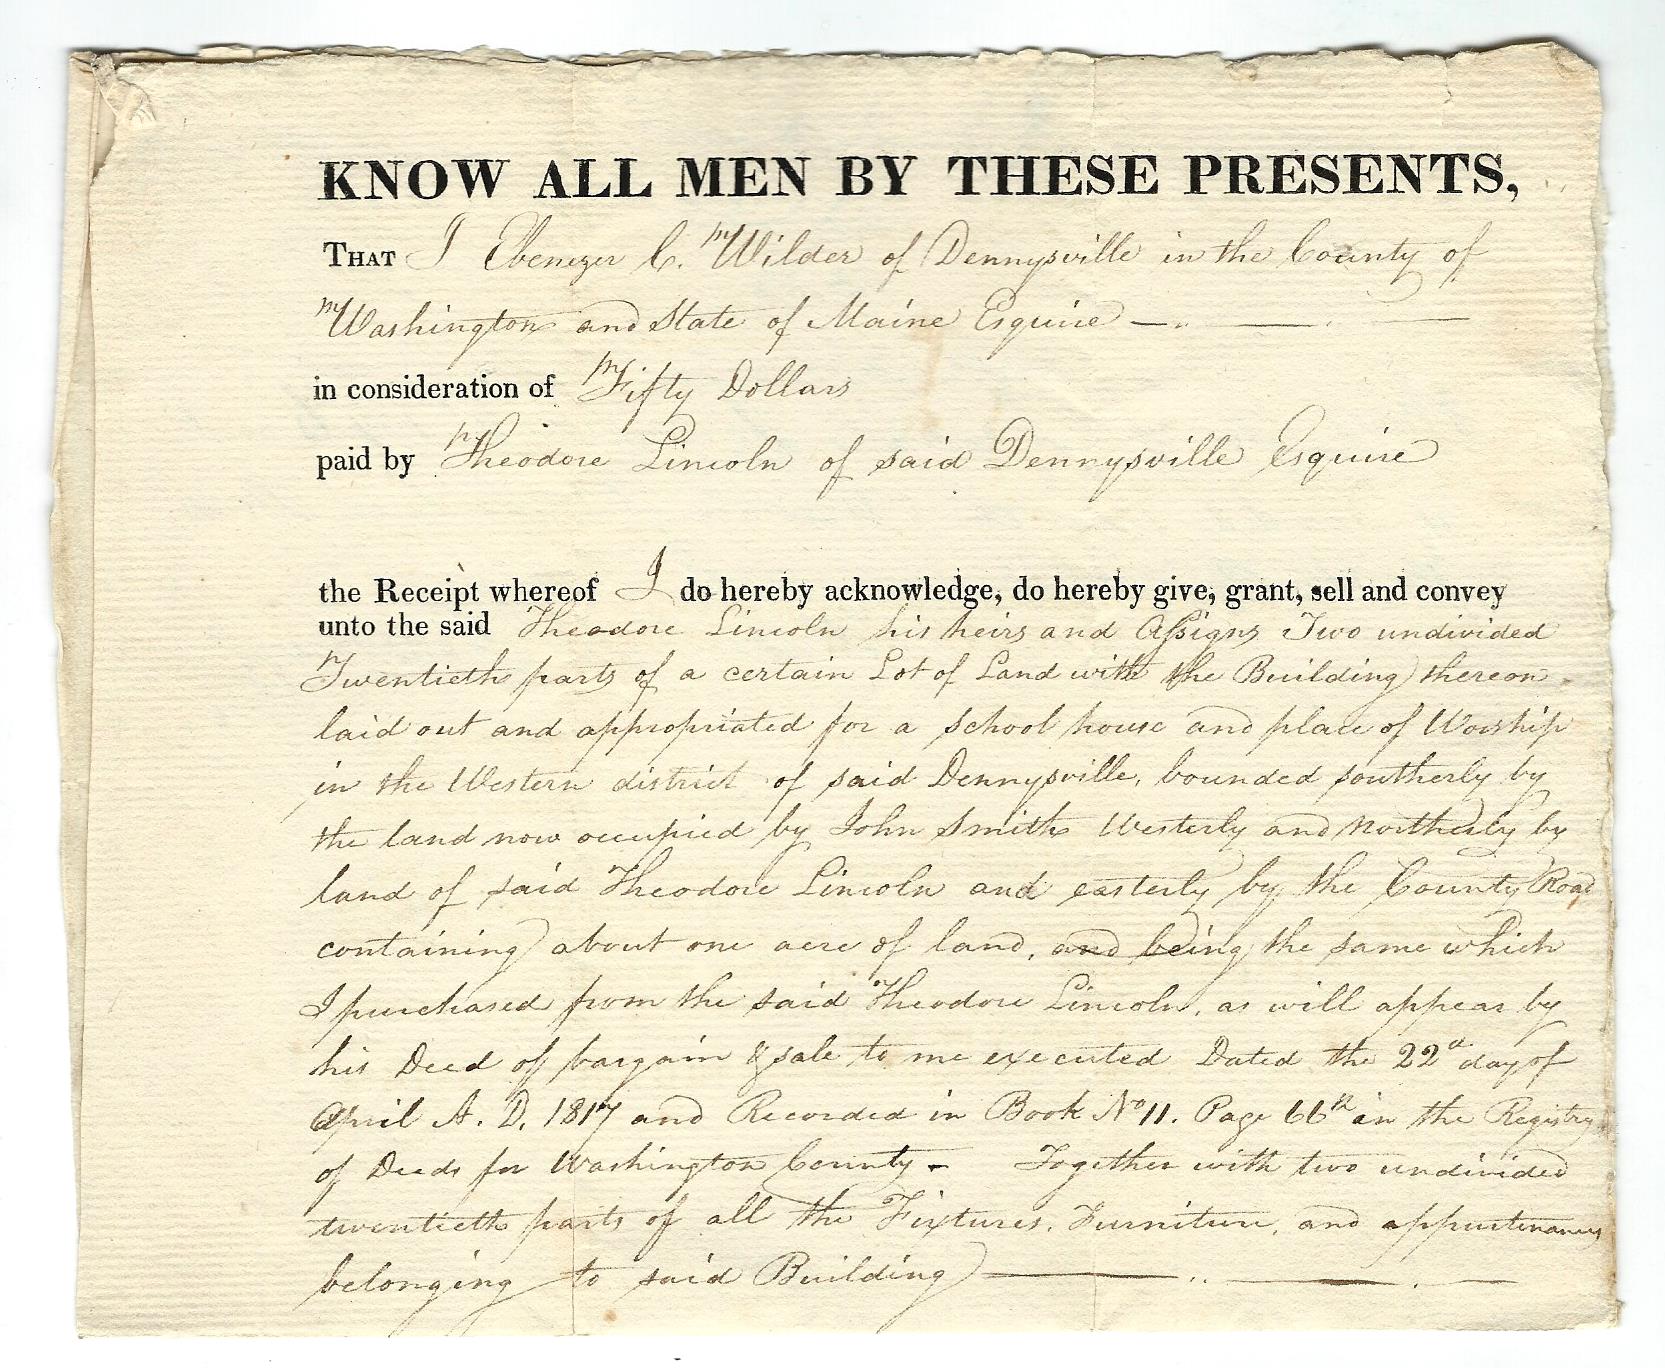 KNOW ALL MEN BY THESE PRESENTS,
THAT I Ebenezer C. Wilder of Dennysville in the County of
Washington and State of Maine Esquire
in consideration of Fifty Dollars
paid by Theodore Lincoln of said Dennysville Esquire
the Receipt whereof I do hereby acknowledge, do hereby give, grant, sell and convey
unto the said Theodore Lincoln his heirs and Assigns Two undivided
Twentieth parts of a certain Lot of Land with the Building thereon
laid out and appropriated for a school house and place of Worship
in the Western district of said Dennysville, bounded southerly by
the land now occupied by John Smith Westerly and Northerly by
land of said Theodore Lincoln and easterly by the County Road
containing about one acre of land, and being the same which
I purchased from the said Theodore Lincoln, as will appear by
his Deed of bargain & sale to me executed Dated the 22d day of
April A. D. 1817 and Recorded in Book No 11. Page 66th in the Registry
of Deeds for Washington County - Together with two undivided
twentieth parts of all the Fixtures, Furniture, and appurtenances
belonging to said Building